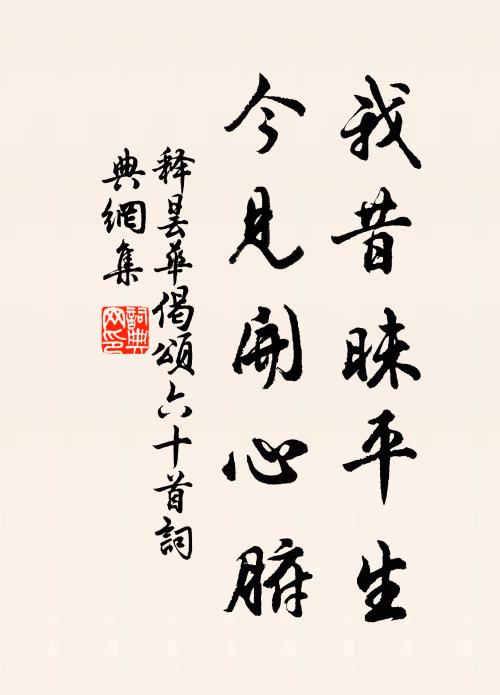 我昔睐平生
今見開心腑
释曇華偈頌六十首詞
典網集
詞典
网印